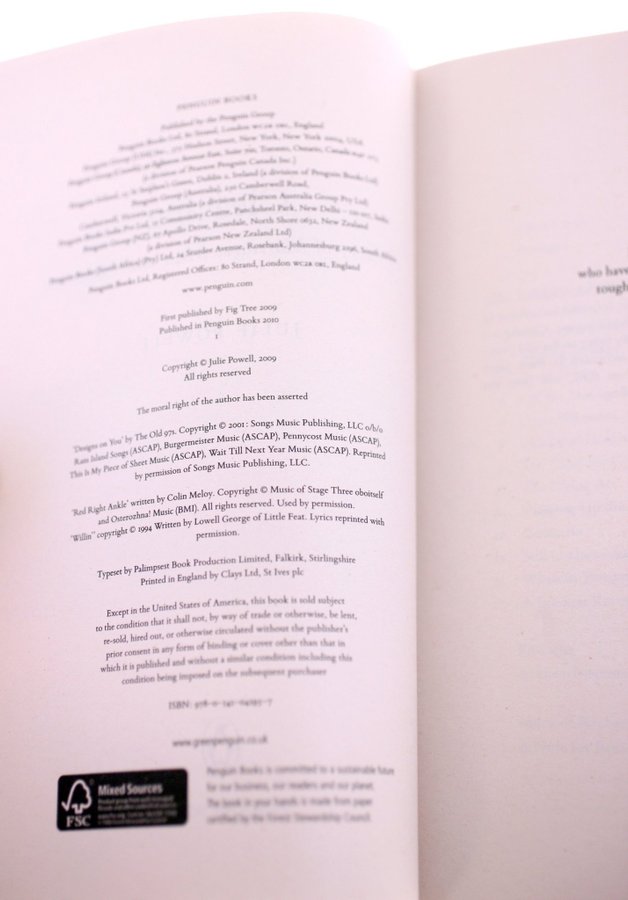 PENGUIN BOOKS
Published by the Penguin Group
Penguin Books Ltd, 80 Strand, London WC2R 0RL, England
Penguin Group (USA) Inc., 375 Hudson Street, New York, New York 10014, USA
Penguin Group (Canada), 90 Eglinton Avenue East, Suite 700, Toronto, Ontario, Canada
(a division of Pearson Penguin Canada Inc.)
Penguin Ireland, 25 St Stephen's Green, Dublin 2, Ireland (a division of Penguin Books Ltd)
Penguin Group (Australia), 250 Camberwell Road,
Camberwell, Victoria 3124, Australia (a division of Pearson Australia Group Pty Ltd)
Penguin Books India Pvt Ltd, 11 Community Centre, Panchsheel Park, New Delhi – 110 017, India
Penguin Group (NZ), 67 Apollo Drive, Rosedale, North Shore 0632, New Zealand
(a division of Pearson New Zealand Ltd)
Penguin Books (South Africa) (Pty) Ltd, 24 Sturdee Avenue, Rosebank, Johannesburg 2196, South Africa
Penguin Books Ltd, Registered Offices: 80 Strand, London WC2R 0RL, England
www.penguin.com
First published by Fig Tree 2009
Published in Penguin Books 2010
1
Copyright © Julie Powell, 2009
All rights reserved
The moral right of the author has been asserted
'Designs on You' by The Old 97s. Copyright © 2001: Songs Music Publishing, LLC o/b/o
Ram Island Songs (ASCAP), Burgermeister Music (ASCAP), Pennycost Music (ASCAP),
This Is My Piece of Sheet Music (ASCAP), Wait Till Next Year Music (ASCAP). Reprinted
by permission of Songs Music Publishing, LLC.
'Red Right Ankle' written by Colin Meloy. Copyright © Music of Stage Three oboitself
and Osterozhna! Music (BMI). All rights reserved. Used by permission.
'Willin'' copyright © 1994 Written by Lowell George of Little Feat. Lyrics reprinted with
permission.
Typeset by Palimpsest Book Production Limited, Falkirk, Stirlingshire
Printed in England by Clays Ltd, St Ives plc
Except in the United States of America, this book is sold subject
to the condition that it shall not, by way of trade or otherwise, be lent,
re-sold, hired out, or otherwise circulated without the publisher's
prior consent in any form of binding or cover other than that in
which it is published and without a similar condition including this
condition being imposed on the subsequent purchaser
ISBN:
www.greenpenguin.co.uk
Mixed Sources
Product group from well-managed
FSC
Penguin Books is committed to a sustainable future
for our business, our readers and our planet.
The book in your hands is made from paper
certified by the Forest Stewardship Council.
who have
tough